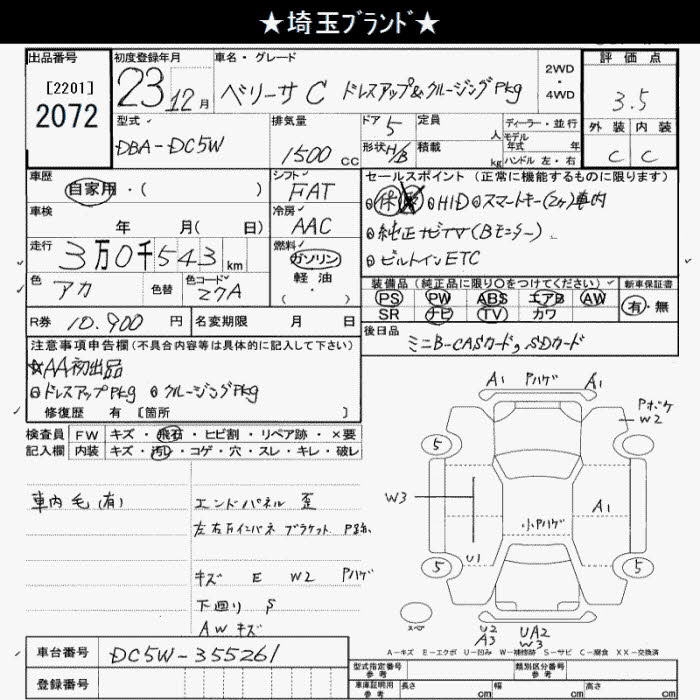 ★埼玉ブランド★
出品番号
[2201]
2072
初度登録年月
23 12月
車名・グレード
ベリーサ C ドレスアップ&クルージングPkg
2WD
・
4WD
評価点
3.5
外装 内装
C C
型式
DBA-DC5W
排気量
1500 cc
ドア 5
形状 H/B
定員 人
積載 kg
ディーラー・並行
モデル年式 年
ハンドル 左・右
車歴
自家用・( )
シフト
FAT
車検
年 月( 日)
冷房
AAC
走行
3万0千543 km
燃料
ガソリン
軽油
( ・ )
色
アカ
色替
色コード
27A
R券 10.900 円
名変期限 月 日
セールスポイント(正常に機能するものに限ります)
保 HID スマートキー(2ヶ)車内
純正ナビTV(Bモニター)
ビルトインETC
装備品(純正品に限り○をつけてください)
PS PW ABS エアB AW
SR ナビ TV カワ
新車保証書
有・無
後日品
ミニB-CASカード,SDカード
注意事項申告欄(不具合内容等は具体的に記入して下さい)
☆AA初出品
ドレスアップPkg クルージングPkg
修復歴 有 [箇所 ]
検査員記入欄
FW キズ・飛石・ヒビ割・リペア跡・×要
内装 キズ・汚れ・コゲ・穴・スレ・キレ・破レ
車内毛(有)
エンドパネル 歪
左右リインパネ ブラケット P跡.
キズ E W2 Pハゲ
下廻り S
AWキズ
A1 Pハゲ A1
Pボケ
W2
5
W3
A1
小Pハゲ
U1
5 5
スペア
U2
A3
UA2
W3
A-キズ E-エクボ U-凹み W-補修跡 S-サビ C-腐食 XX-交換済
車台番号 DC5W-355261
登録番号
型式指定番号
参考
類別区分番号
参考
車庫証明用
参考
長さ cm 幅 cm 高さ cm